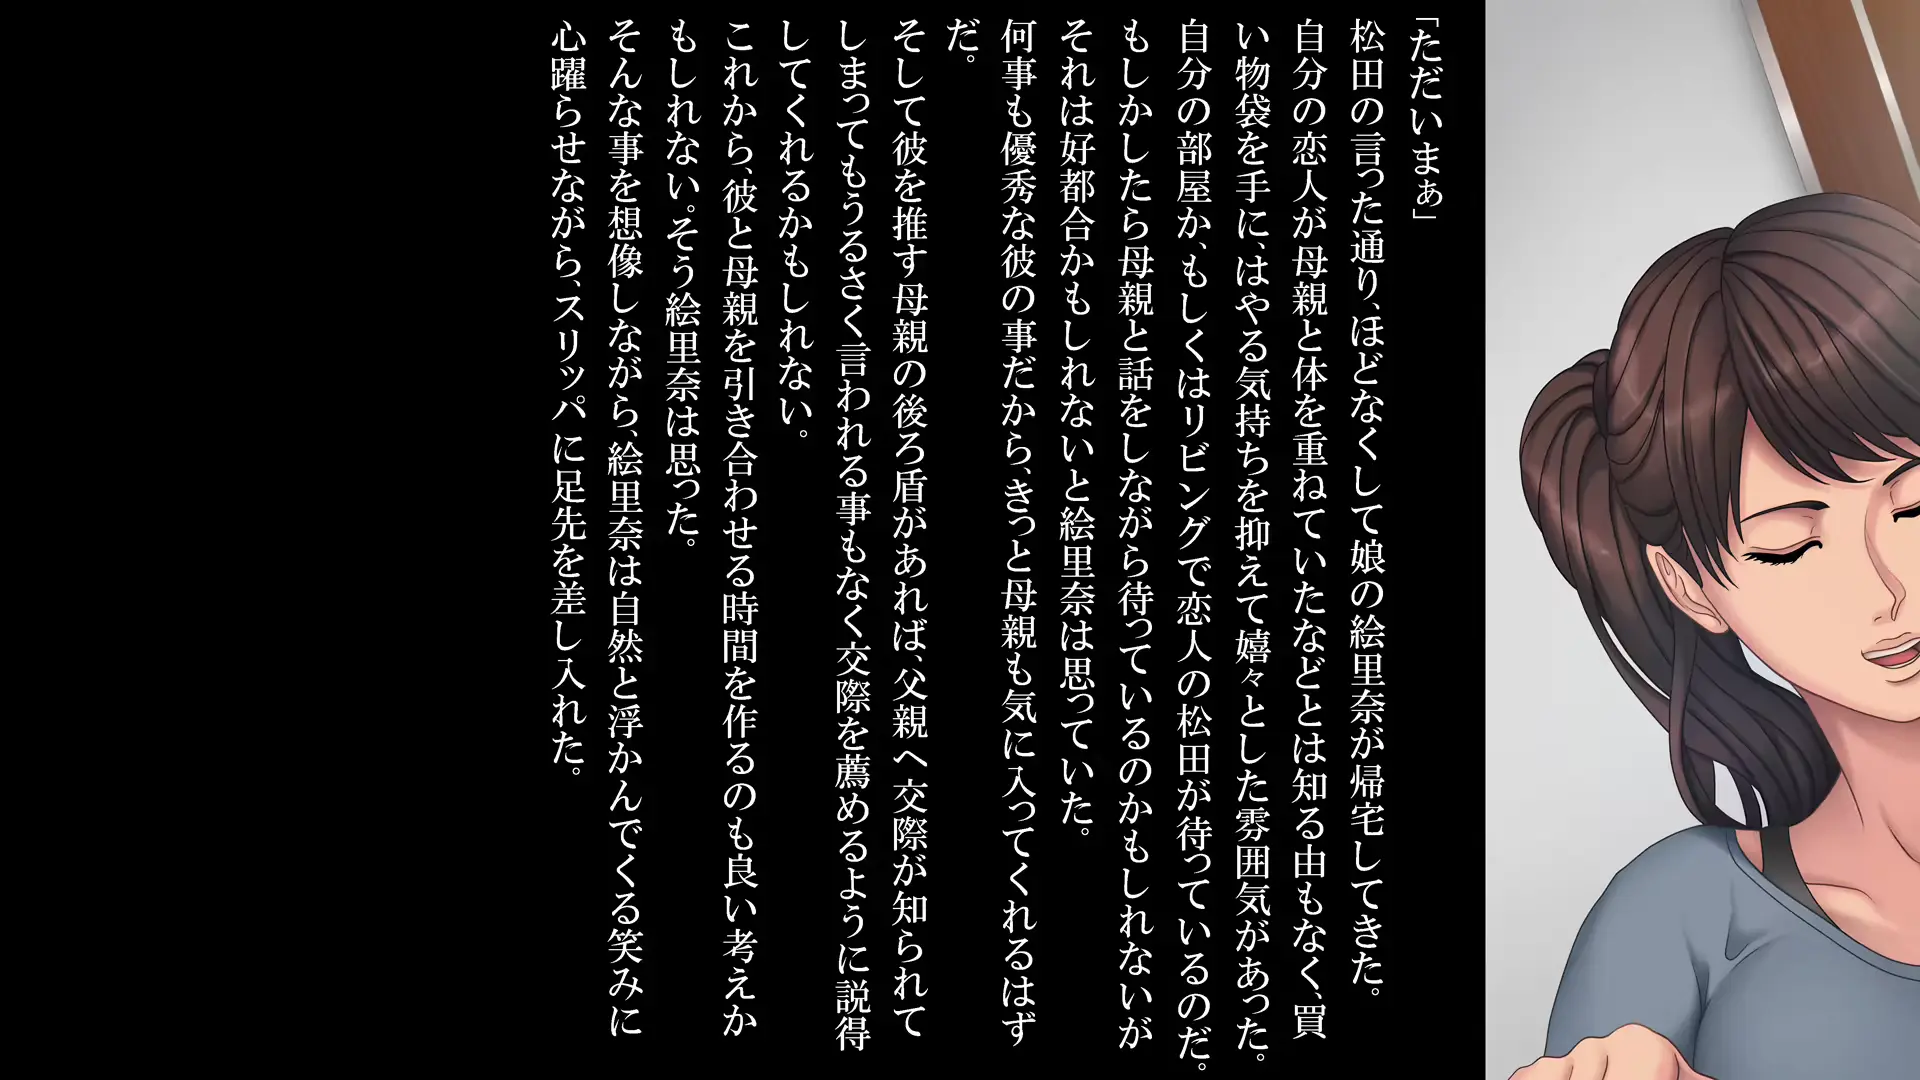 「ただいまぁ」
松田の言った通り、ほどなくして娘の絵里奈が帰宅してきた。
自分の恋人が母親と体を重ねていたなどとは知る由もなく、買
い物袋を手に、はやる気持ちを抑えて嬉々とした雰囲気があった。
自分の部屋か、もしくはリビングで恋人の松田が待っているのだ。
もしかしたら母親と話をしながら待っているのかもしれないが
それは好都合かもしれないと絵里奈は思っていた。
何事も優秀な彼の事だから、きっと母親も気に入ってくれるはず
だ。
そして彼を推す母親の後ろ盾があれば、父親へ交際が知られて
しまってもうるさく言われる事もなく交際を薦めるように説得
してくれるかもしれない。
これから、彼と母親を引き合わせる時間を作るのも良い考えか
もしれない。そう絵里奈は思った。
そんな事を想像しながら、絵里奈は自然と浮かんでくる笑みに
心躍らせながら、スリッパに足先を差し入れた。